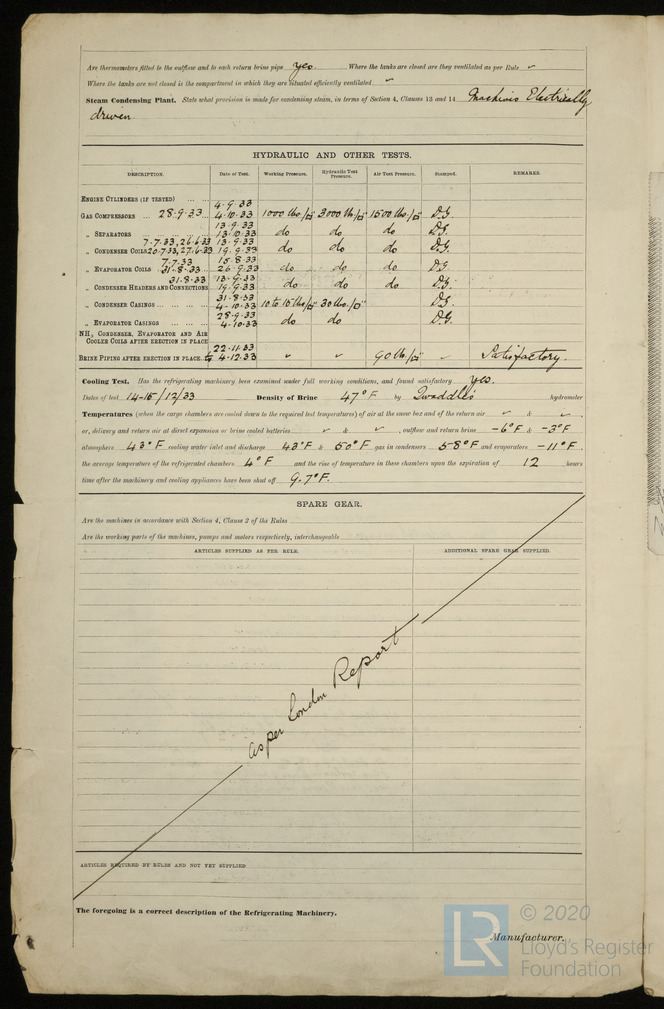 Are thermometers fitted to the outflow and to each return brine pipe yes. Where the tanks are closed are they ventilated as per Rule ✓
Where the tanks are not closed is the compartment in which they are situated efficiently ventilated ✓
Steam Condensing Plant. State what provision is made for condensing steam, in terms of Section 4, Clauses 13 and 14 Machines Electrically
driven.
HYDRAULIC AND OTHER TESTS.
DESCRIPTION. Date of Test. Working Pressure. Hydraulic Test Pressure. Air Test Pressure. Stamped. REMARKS.
ENGINE CYLINDERS (IF TESTED) ... ...
4.9.33
GAS COMPRESSORS ... 28.9.33 4.10.33 1000 lbs/□" 3000 lb/□" 1500 lbs/□" D.G.
13.9.33
„ SEPARATORS 13.10.33 do do do D.G.
7.7.33, 26.6.33 13.9.33
„ CONDENSER COILS 20.7.33, 27.6.33 19.9.33 do do do D.G.
7.7.33 15.8.33
„ EVAPORATOR COILS 31.8.33 26.9.33 do do do D.G.
31.8.33 13.9.33
„ CONDENSER HEADERS AND CONNECTIONS 19.9.33 do do do D.G.
31.8.33
„ CONDENSER CASINGS ... ... ... 4.10.33 10 to 15 lbs/□" 30 lbs/□" D.G.
28.9.33
„ EVAPORATOR CASINGS ... ... ... 4.10.33 do do D.G.
NH₃ CONDENSER, EVAPORATOR AND AIR
COOLER COILS AFTER ERECTION IN PLACE
22.11.33
BRINE PIPING AFTER ERECTION IN PLACE. to 4.12.33 " " 90 lb/□" ✓ Satisfactory.
Cooling Test. Has the refrigerating machinery been examined under full working conditions, and found satisfactory yes.
Dates of test 14-15/12/33 Density of Brine 47°F by Twaddle's hydrometer
Temperatures (when the cargo chambers are cooled down to the required test temperatures) of air at the snow box and of the return air ✓ & ✓
or, delivery and return air at direct expansion or brine cooled batteries ✓ & ✓, outflow and return brine -6°F & -3°F
atmosphere 43°F cooling water inlet and discharge 43°F & 50°F gas in condensers 58°F and evaporators -11°F.
the average temperature of the refrigerated chambers 4°F and the rise of temperature in these chambers upon the expiration of 12 hours
time after the machinery and cooling appliances have been shut off 9.7°F.
SPARE GEAR.
Are the machines in accordance with Section 4, Clause 2 of the Rules
Are the working parts of the machines, pumps and motors respectively, interchangeable
ARTICLES SUPPLIED AS PER RULE. ADDITIONAL SPARE GEAR SUPPLIED.
as per London Report
ARTICLES REQUIRED BY RULES AND NOT YET SUPPLIED
The foregoing is a correct description of the Refrigerating Machinery.
Manufacturer.
LR © 2020
Lloyd's Register
Foundation